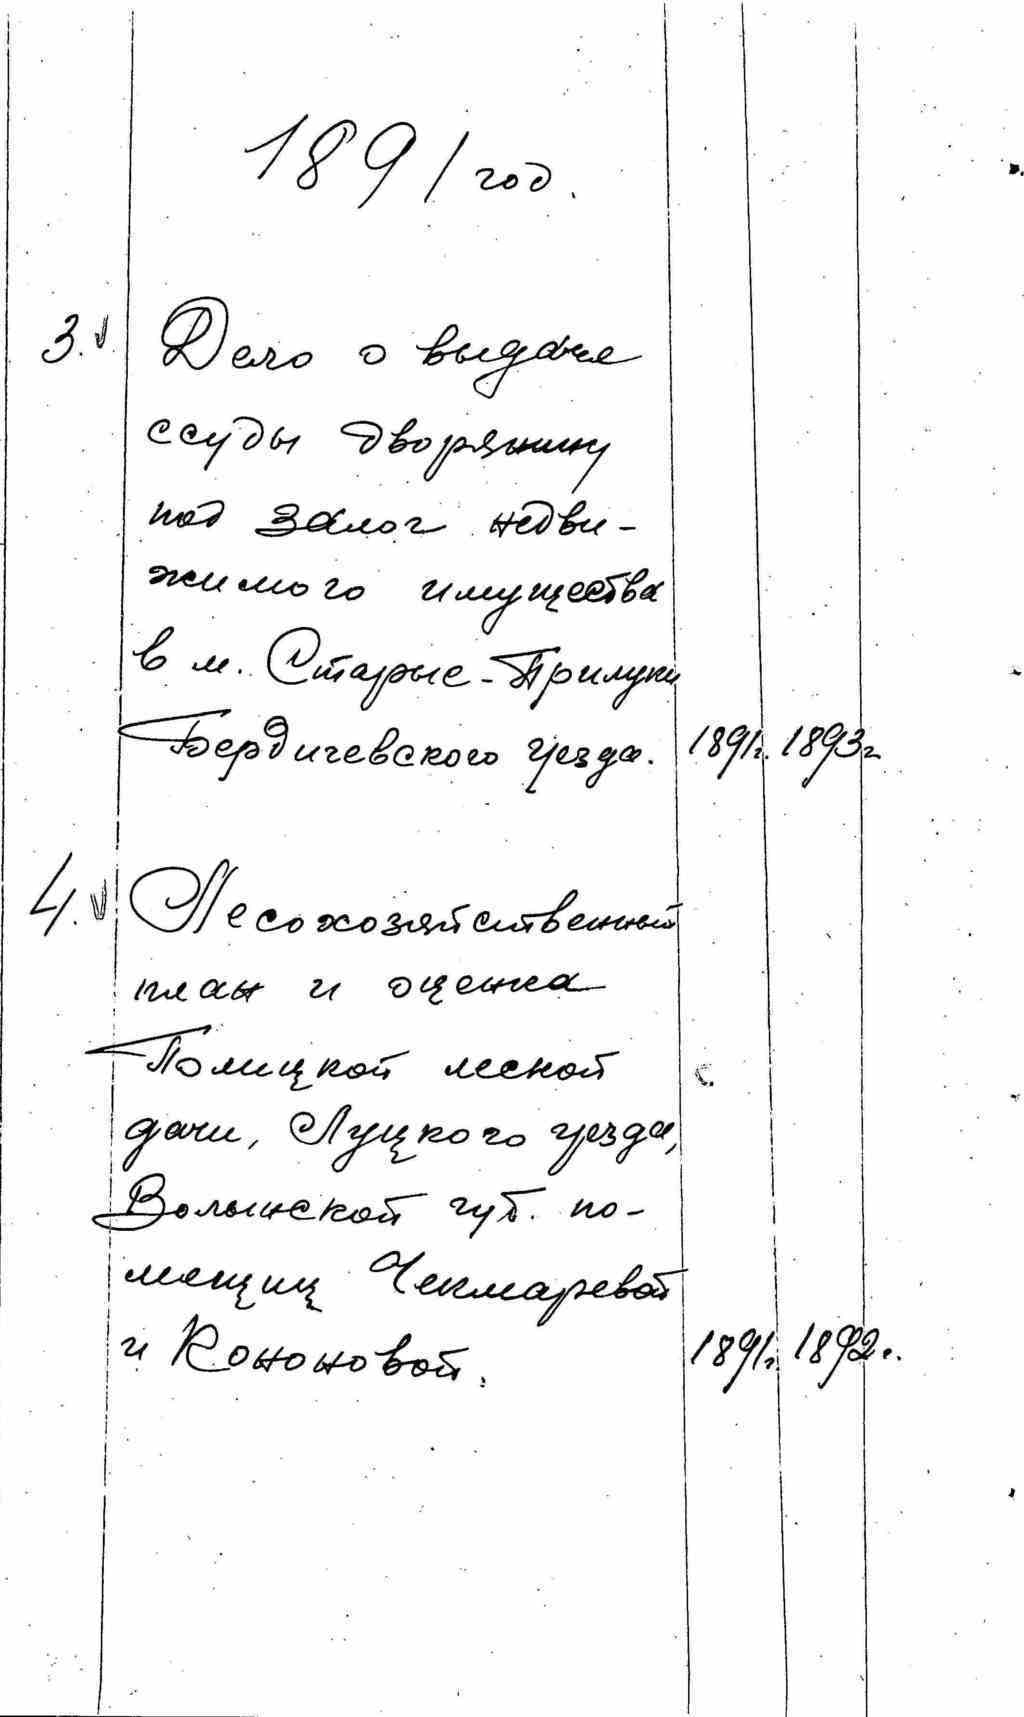 1891 год.
3. Дело о выдаче
ссуды дворянину
под залог недви-
жимого имущества
в м. Старые-Прилуки
Бердичевского уезда. 1891г. 1893г
4. Лесохозяйственный
план и оценка
Полицкой лесной
дачи, Луцкого уезда,
Волынской губ. по-
мещиц Чекмаревой
и Кононовой. 1891г. 1892г.